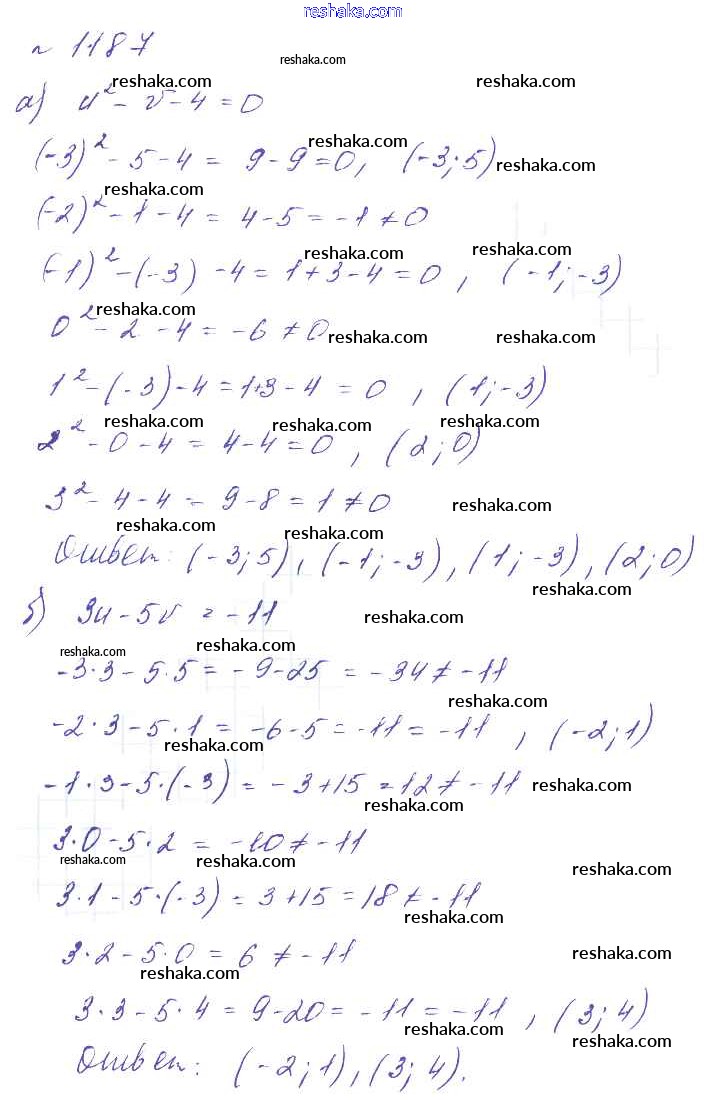 reshaka.com
№ 1187
reshaka.com
reshaka.com reshaka.com
а) u² - v - 4 = 0
reshaka.com
(-3)² - 5 - 4 = 9 - 9 = 0, (-3; 5)
reshaka.com
reshaka.com
(-2)² - 1 - 4 = 4 - 5 = -1 ≠ 0
reshaka.com reshaka.com
(-1)² - (-3) - 4 = 1 + 3 - 4 = 0, (-1; -3)
reshaka.com
0² - 2 - 4 = -6 ≠ 0
reshaka.com reshaka.com
1² - (-3) - 4 = 1+3 - 4 = 0, (1; -3)
reshaka.com reshaka.com reshaka.com
2² - 0 - 4 = 4 - 4 = 0, (2; 0)
3² - 4 - 4 = 9 - 8 = 1 ≠ 0
reshaka.com
reshaka.com reshaka.com
Ответ: (-3; 5), (-1; -3), (1; -3), (2; 0)
reshaka.com
б) 3u - 5v = -11
reshaka.com
reshaka.com reshaka.com
-3·3 - 5·5 = -9 - 25 = -34 ≠ -11
reshaka.com
-2·3 - 5·1 = -6 - 5 = -11 = -11, (-2; 1)
reshaka.com
-1·3 - 5·(-3) = -3 + 15 = 12 ≠ -11
reshaka.com
reshaka.com
3·0 - 5·2 = -10 ≠ -11
reshaka.com reshaka.com reshaka.com
3·1 - 5·(-3) = 3 + 15 = 18 ≠ -11
reshaka.com
3·2 - 5·0 = 6 ≠ -11
reshaka.com
reshaka.com
3·3 - 5·4 = 9 - 20 = -11 = -11, (3; 4)
reshaka.com reshaka.com
Ответ: (-2; 1), (3; 4).